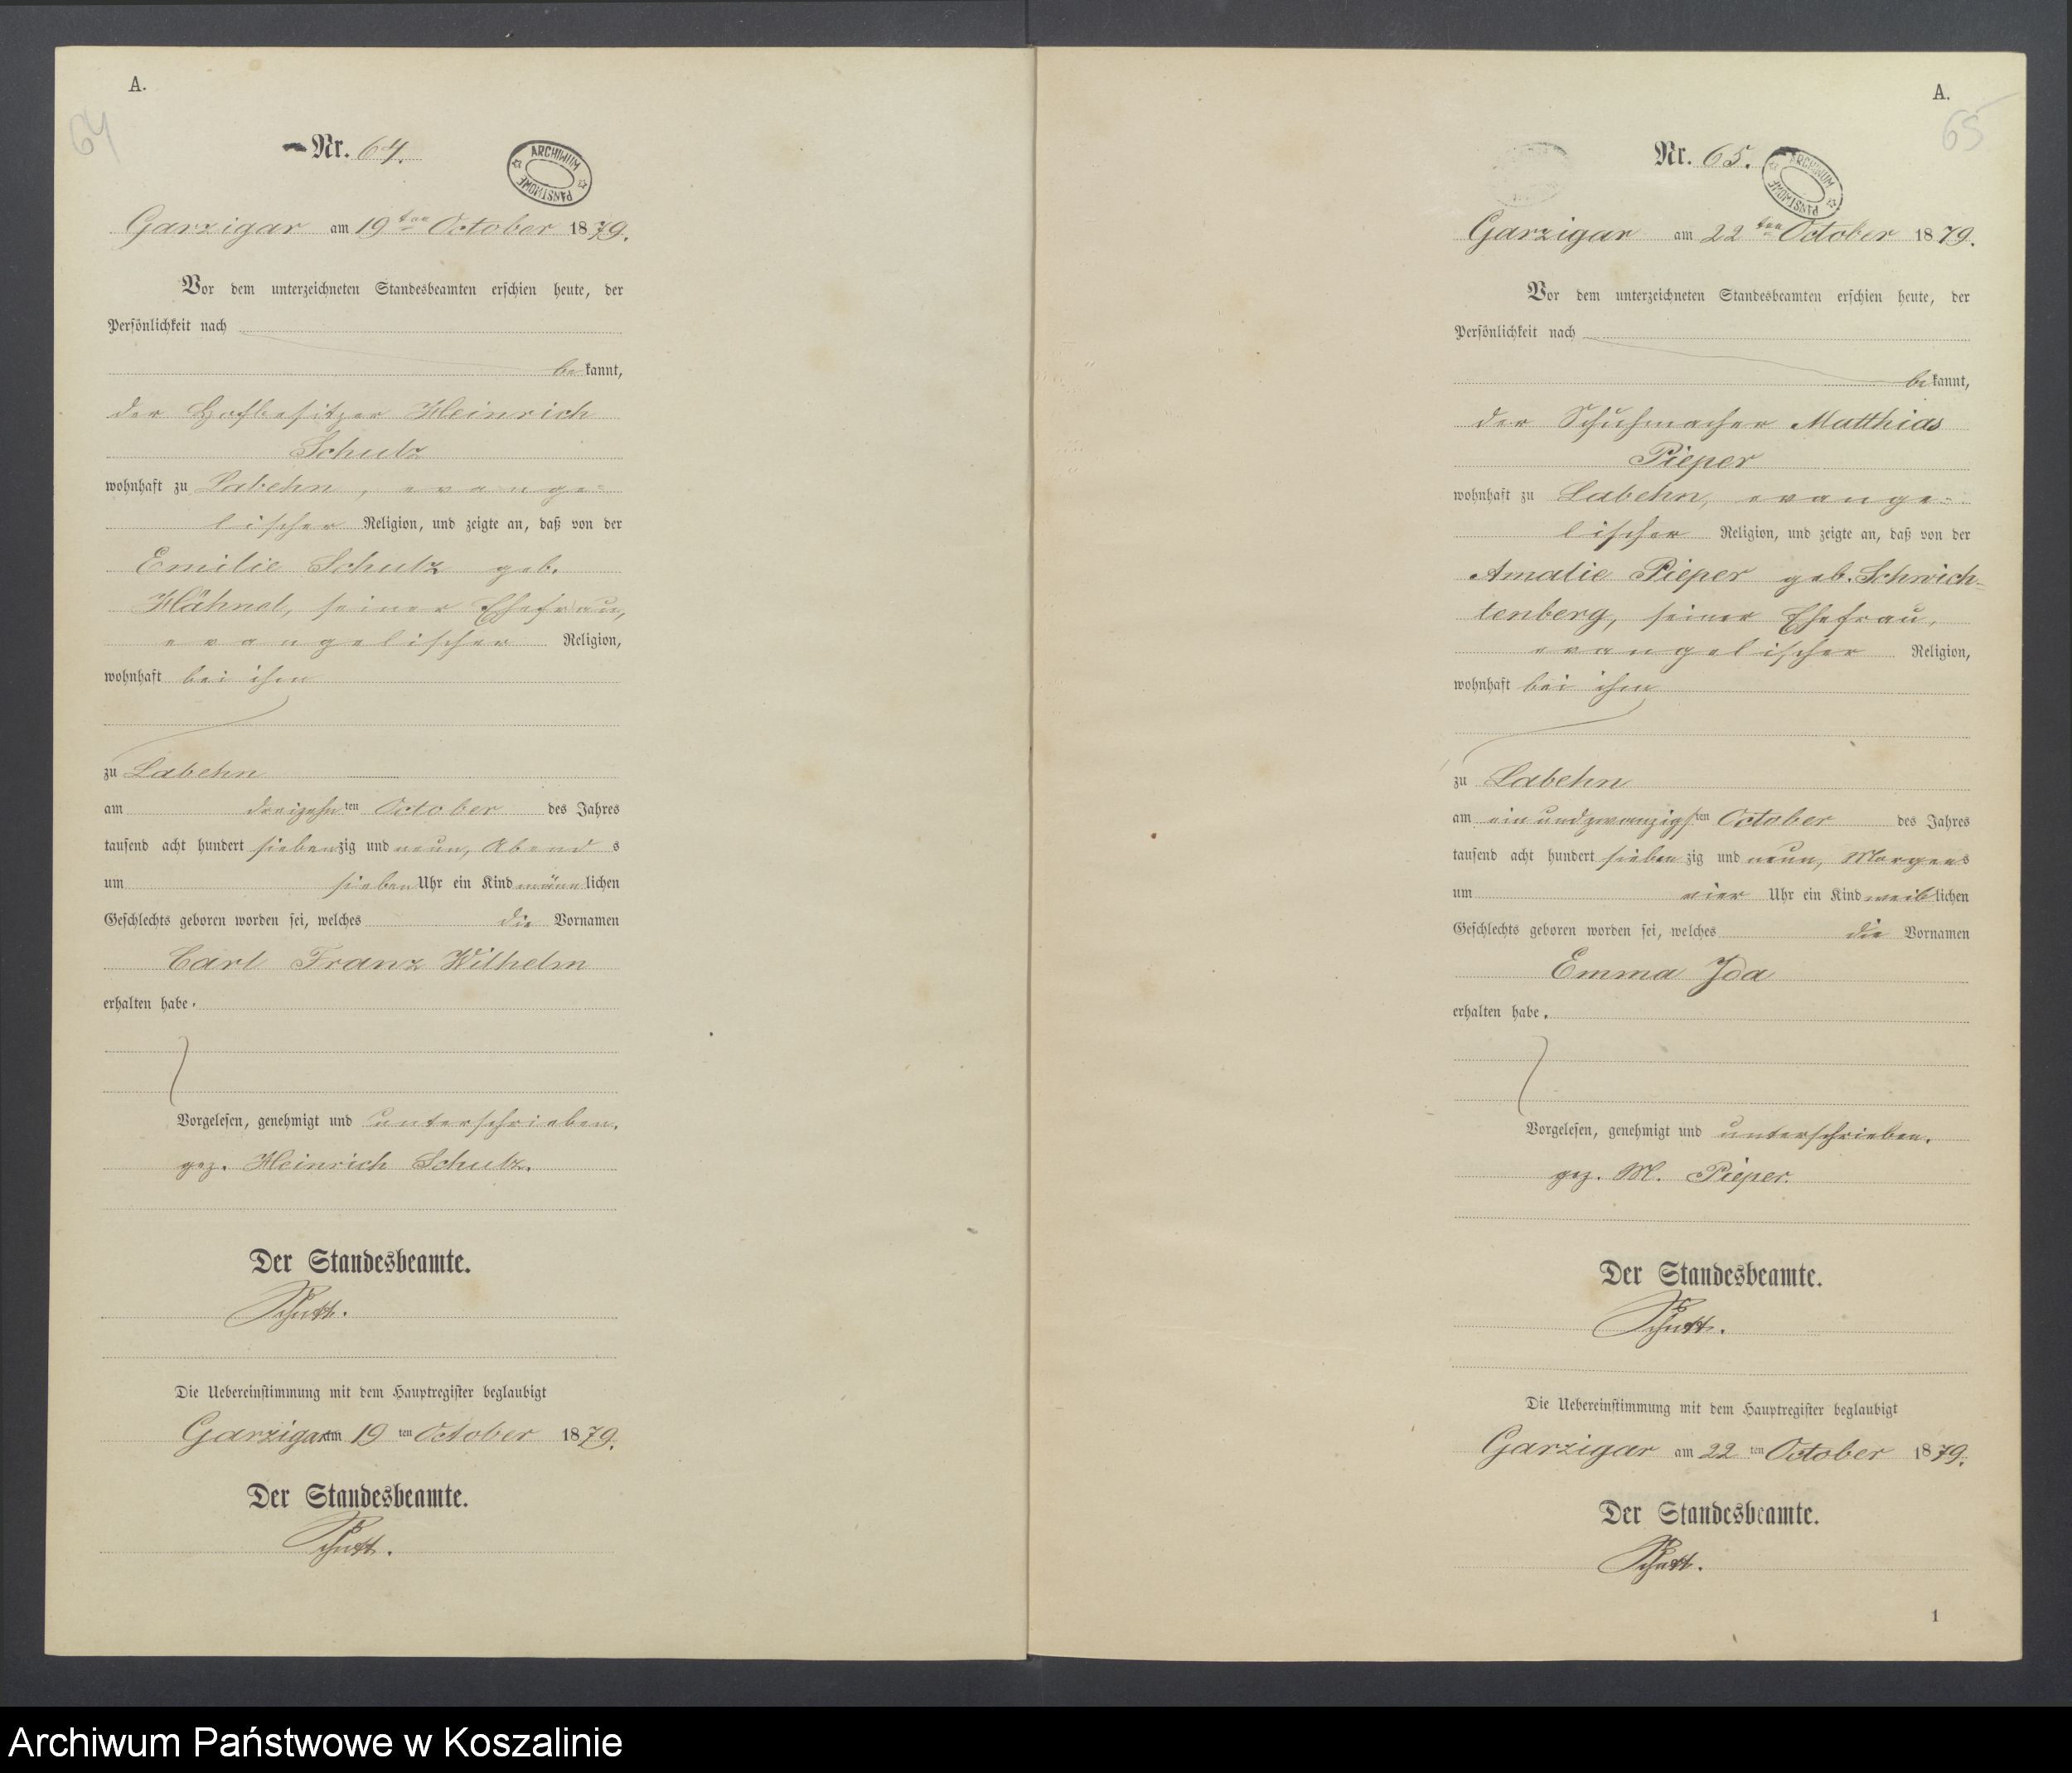 A.
64
Nr. 64.
ARCHIWUM PAŃSTWOWE
Garzigar am 19ten October 1879.
Vor dem unterzeichneten Standesbeamten erschien heute, der
Persönlichkeit nach
bekannt,
der Hofbesitzer Heinrich
Schulz
wohnhaft zu Labehn, evange=
lischer Religion, und zeigte an, daß von der
Emilie Schulz geb.
Hähnel, seiner Ehefrau,
evangelischer Religion,
wohnhaft bei ihm
zu Labehn
am dreizehnten October des Jahres
tausend acht hundert siebenzig und neun, Abends
um sieben Uhr ein Kind männlichen
Geschlechts geboren worden sei, welches die Vornamen
Carl Franz Wilhelm
erhalten habe.
Vorgelesen, genehmigt und unterschrieben.
gez. Heinrich Schulz.
Der Standesbeamte.
Die Uebereinstimmung mit dem Hauptregister beglaubigt
Garzigar am 19ten October 1879.
Der Standesbeamte.
A.
65
Nr. 65.
ARCHIWUM PAŃSTWOWE
Garzigar am 22ten October 1879.
Vor dem unterzeichneten Standesbeamten erschien heute, der
Persönlichkeit nach
bekannt,
der Schuhmacher Matthias
Pieper
wohnhaft zu Labehn, evange=
lischer Religion, und zeigte an, daß von der
Amalie Pieper geb. Schwich=
tenberg, seiner Ehefrau,
evangelischer Religion,
wohnhaft bei ihm
zu Labehn
am ein und zwanzigsten October des Jahres
tausend acht hundert siebenzig und neun, Morgens
um vier Uhr ein Kind weiblichen
Geschlechts geboren worden sei, welches die Vornamen
Emma Ida
erhalten habe.
Vorgelesen, genehmigt und unterschrieben.
gez. M. Pieper.
Der Standesbeamte.
Die Uebereinstimmung mit dem Hauptregister beglaubigt
Garzigar am 22ten October 1879.
Der Standesbeamte.
1
Archiwum Państwowe w Koszalinie